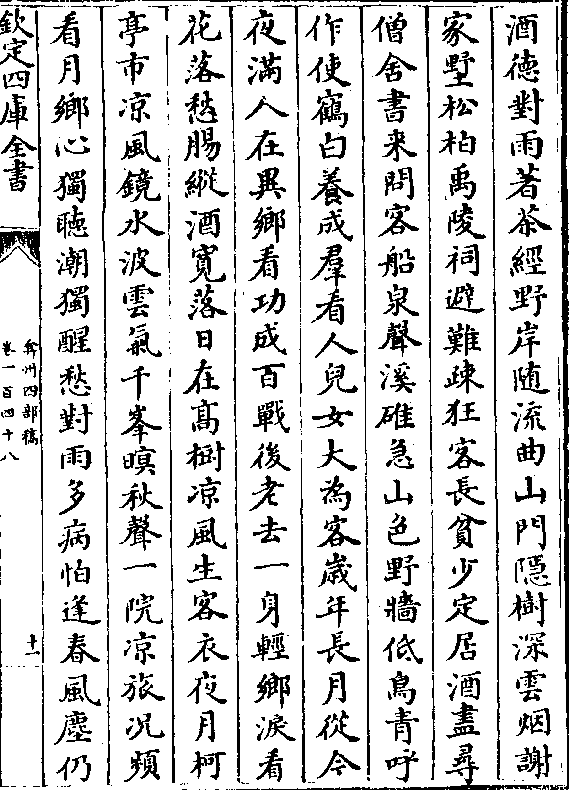 酒德對雨著茶經野岸随流曲山門隱樹深雲烟謝
家墅松柏禹陵祠避難疎狂客長貧少定居酒盡尋
僧舍書来問客船泉聲溪碓急山色野牆低鳥青呼
作使鶴白養成羣看人兒女大為客嵗年長月從今
夜滿人在異鄉看功成百戰後老去一身輕鄉淚看
花落愁腸縱酒寛落日在髙樹凉風生客衣夜月柯
亭市凉風鏡水波雲氣千峯暝秋聲一院凉旅况頻
看月鄉心獨聴潮獨醒愁對雨多病怕逢春風塵仍
欽定四庫全書
弇州四部稿
卷一百四十八
十一